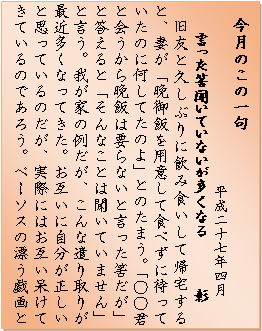 今月のこの一句
平成二十七年四月
言った筈聞いていないが多くなる　　彰
旧友と久しぶりに飲み食いして帰宅する
と、妻が「晩御飯を用意して食べずに待って
いたのに何してたのよ」とのたまう。「〇〇君
と会うから晩飯は要らないと言った筈だが」
と答えると「そんなことは聞いていません」
と言う。我が家の例だが、こんな遣り取りが
最近多くなってきた。お互いに自分が正しい
と思っているのだが、実際にはお互い呆けて
きているのであろう。ペーソスの漂う戯画と